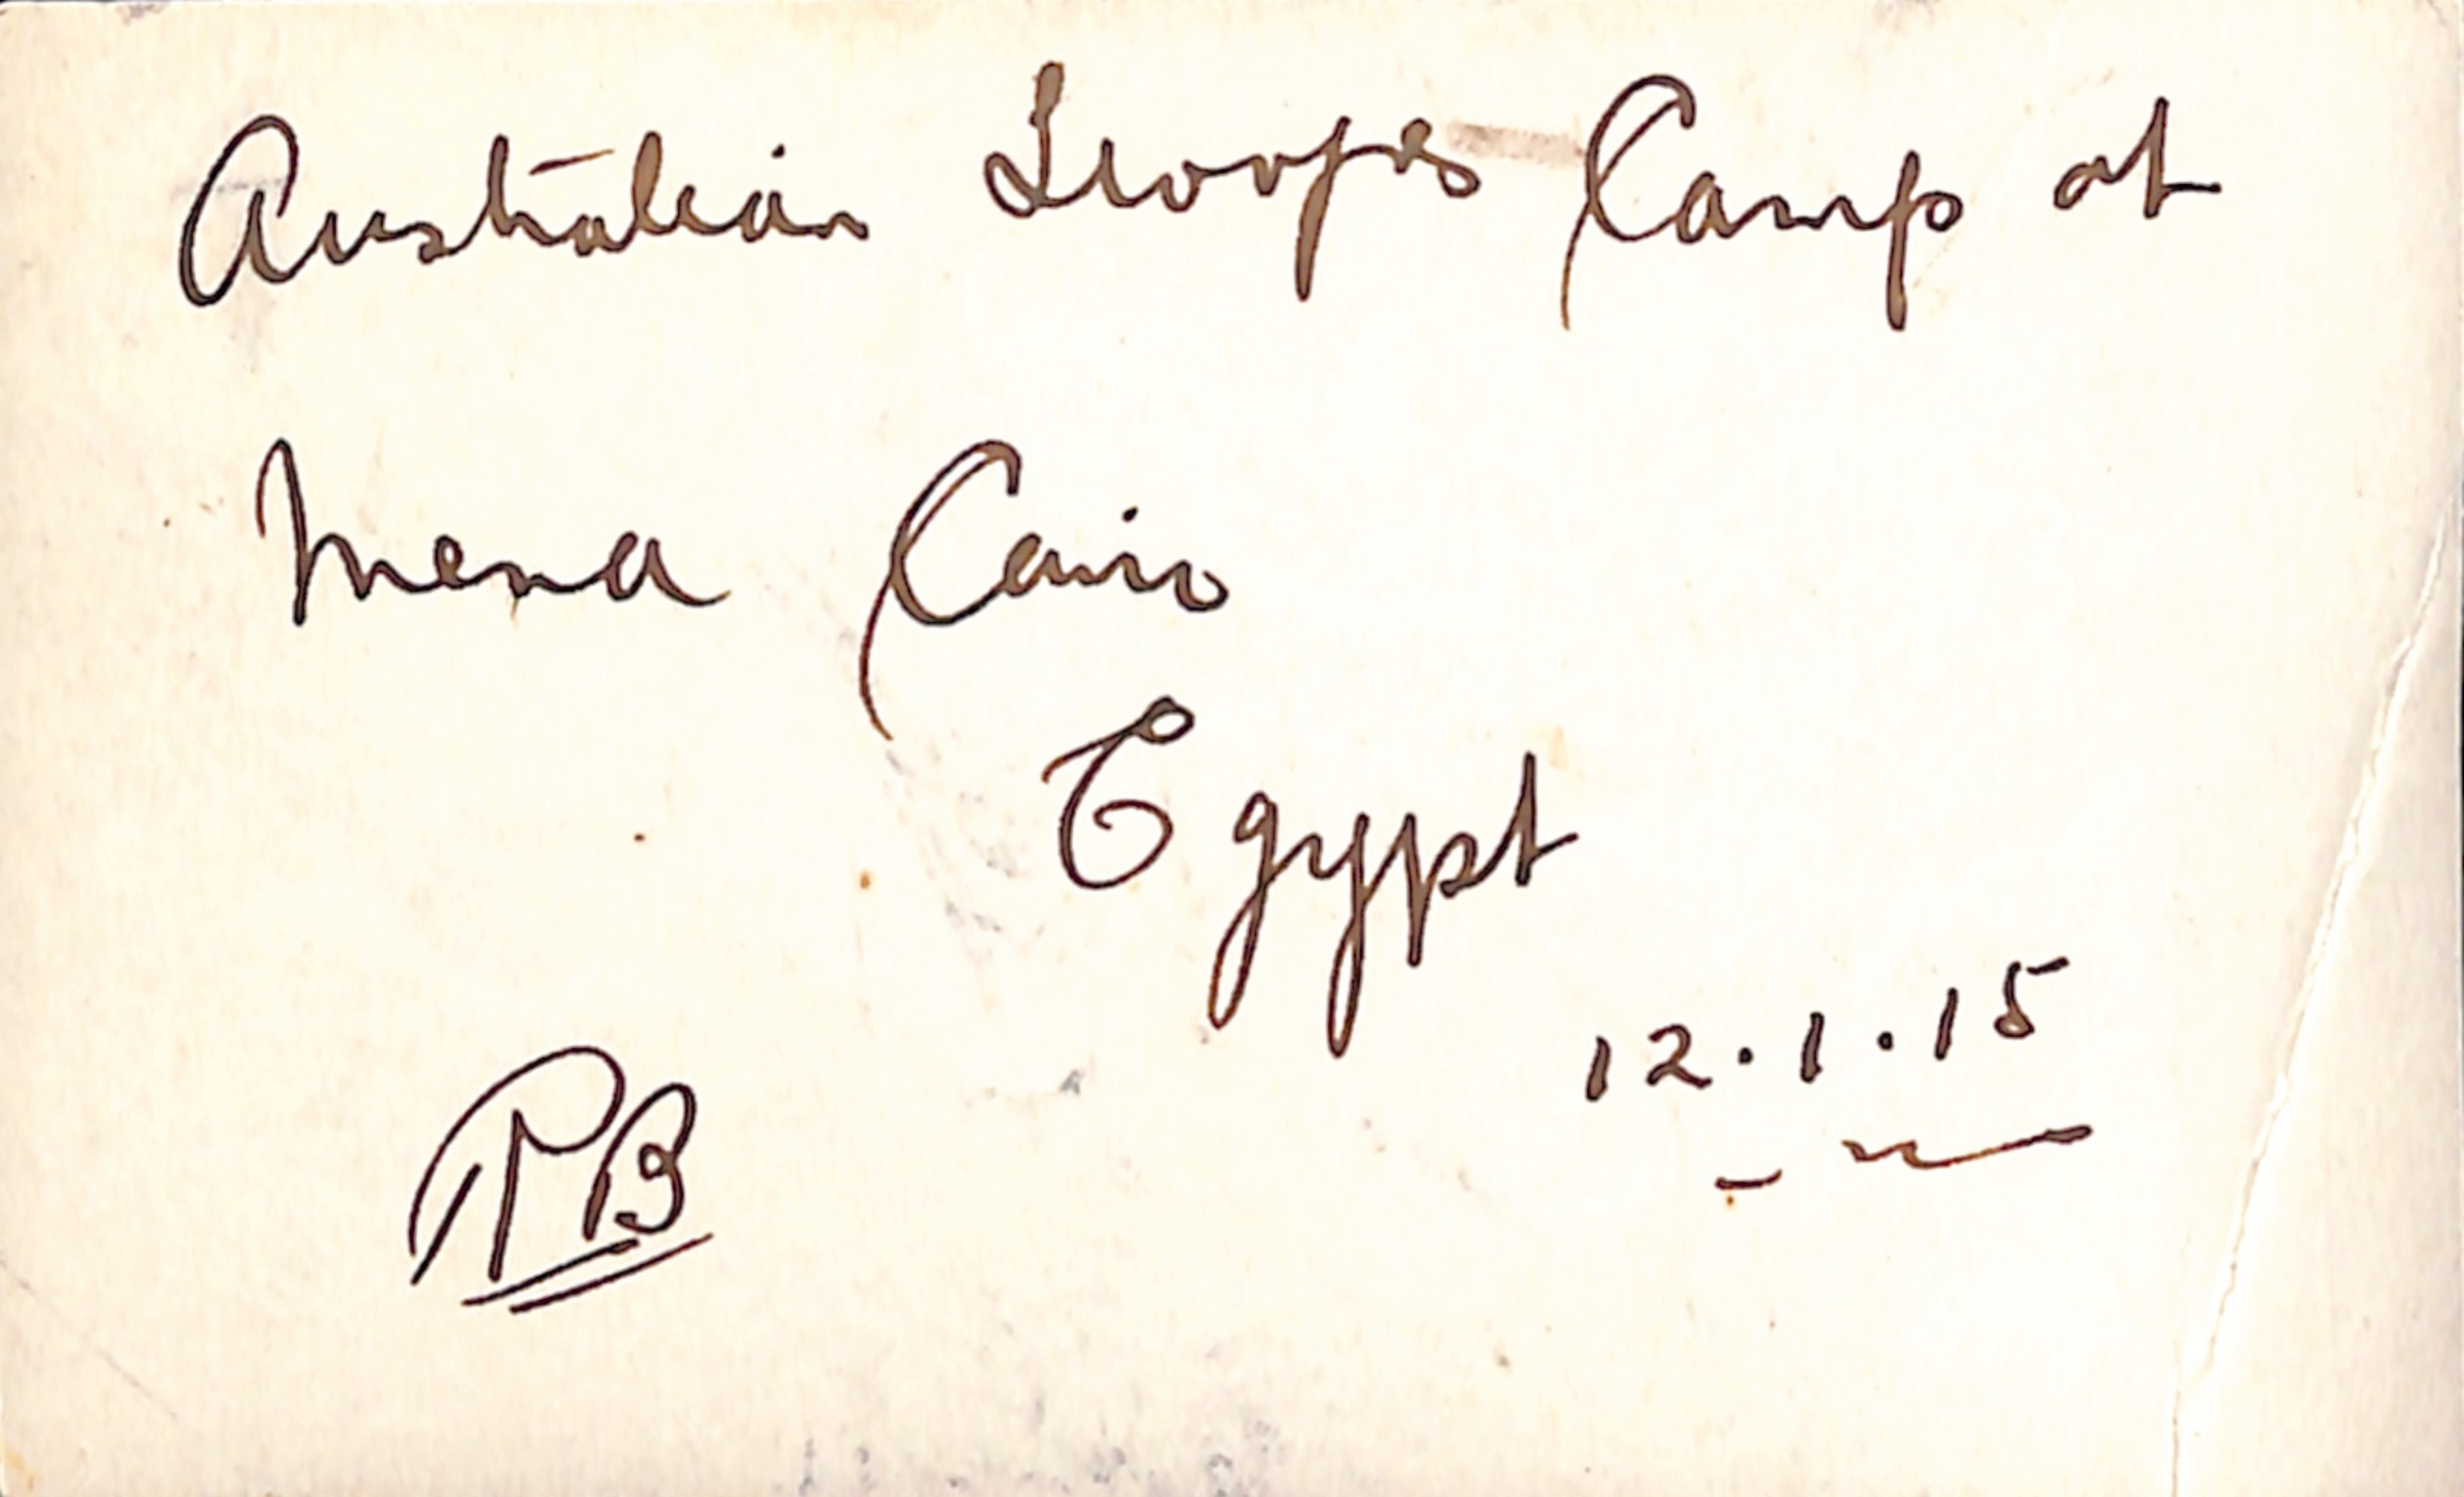 Australian Troops Camp at
Mena Cairo
Egypt
12.1.15
PB